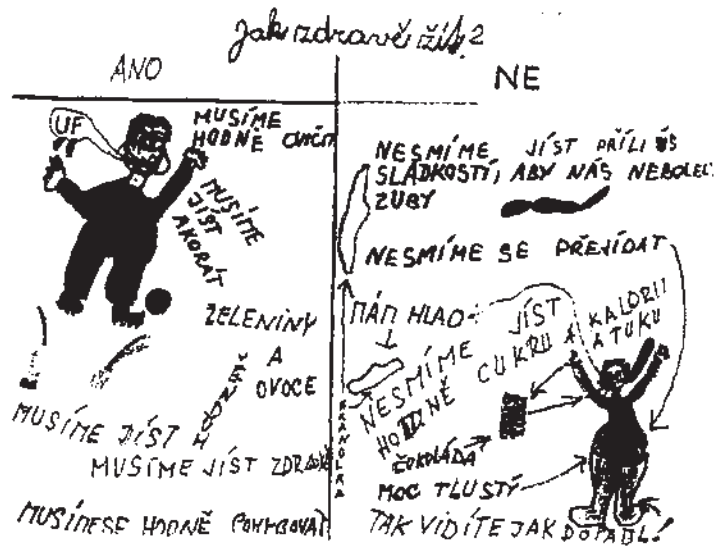 Jak zdravě žít?
ANO
NE
UF
MUSÍME
HODNĚ CVIČIT
MUSÍME
JÍST
AKORÁT
ZELENINY
A
OVOCE
MUSÍME JÍST HODNĚ
MUSÍME JÍST ZDRAVĚ
MUSÍME SE HODNĚ POHYBOVAT
NESMÍME JÍST PŘÍLIŠ
SLADKOSTÍ, ABY NÁS NEBOLELY
ZUBY
NESMÍME SE PŘEJÍDAT
MÁM HLAD
NESMÍME JÍST
HODNĚ CUKRU A KALORIÍ
A TUKU
ČOKOLÁDA
MOC TLUSTÝ
TAK VIDÍTE JAK DOPADL!